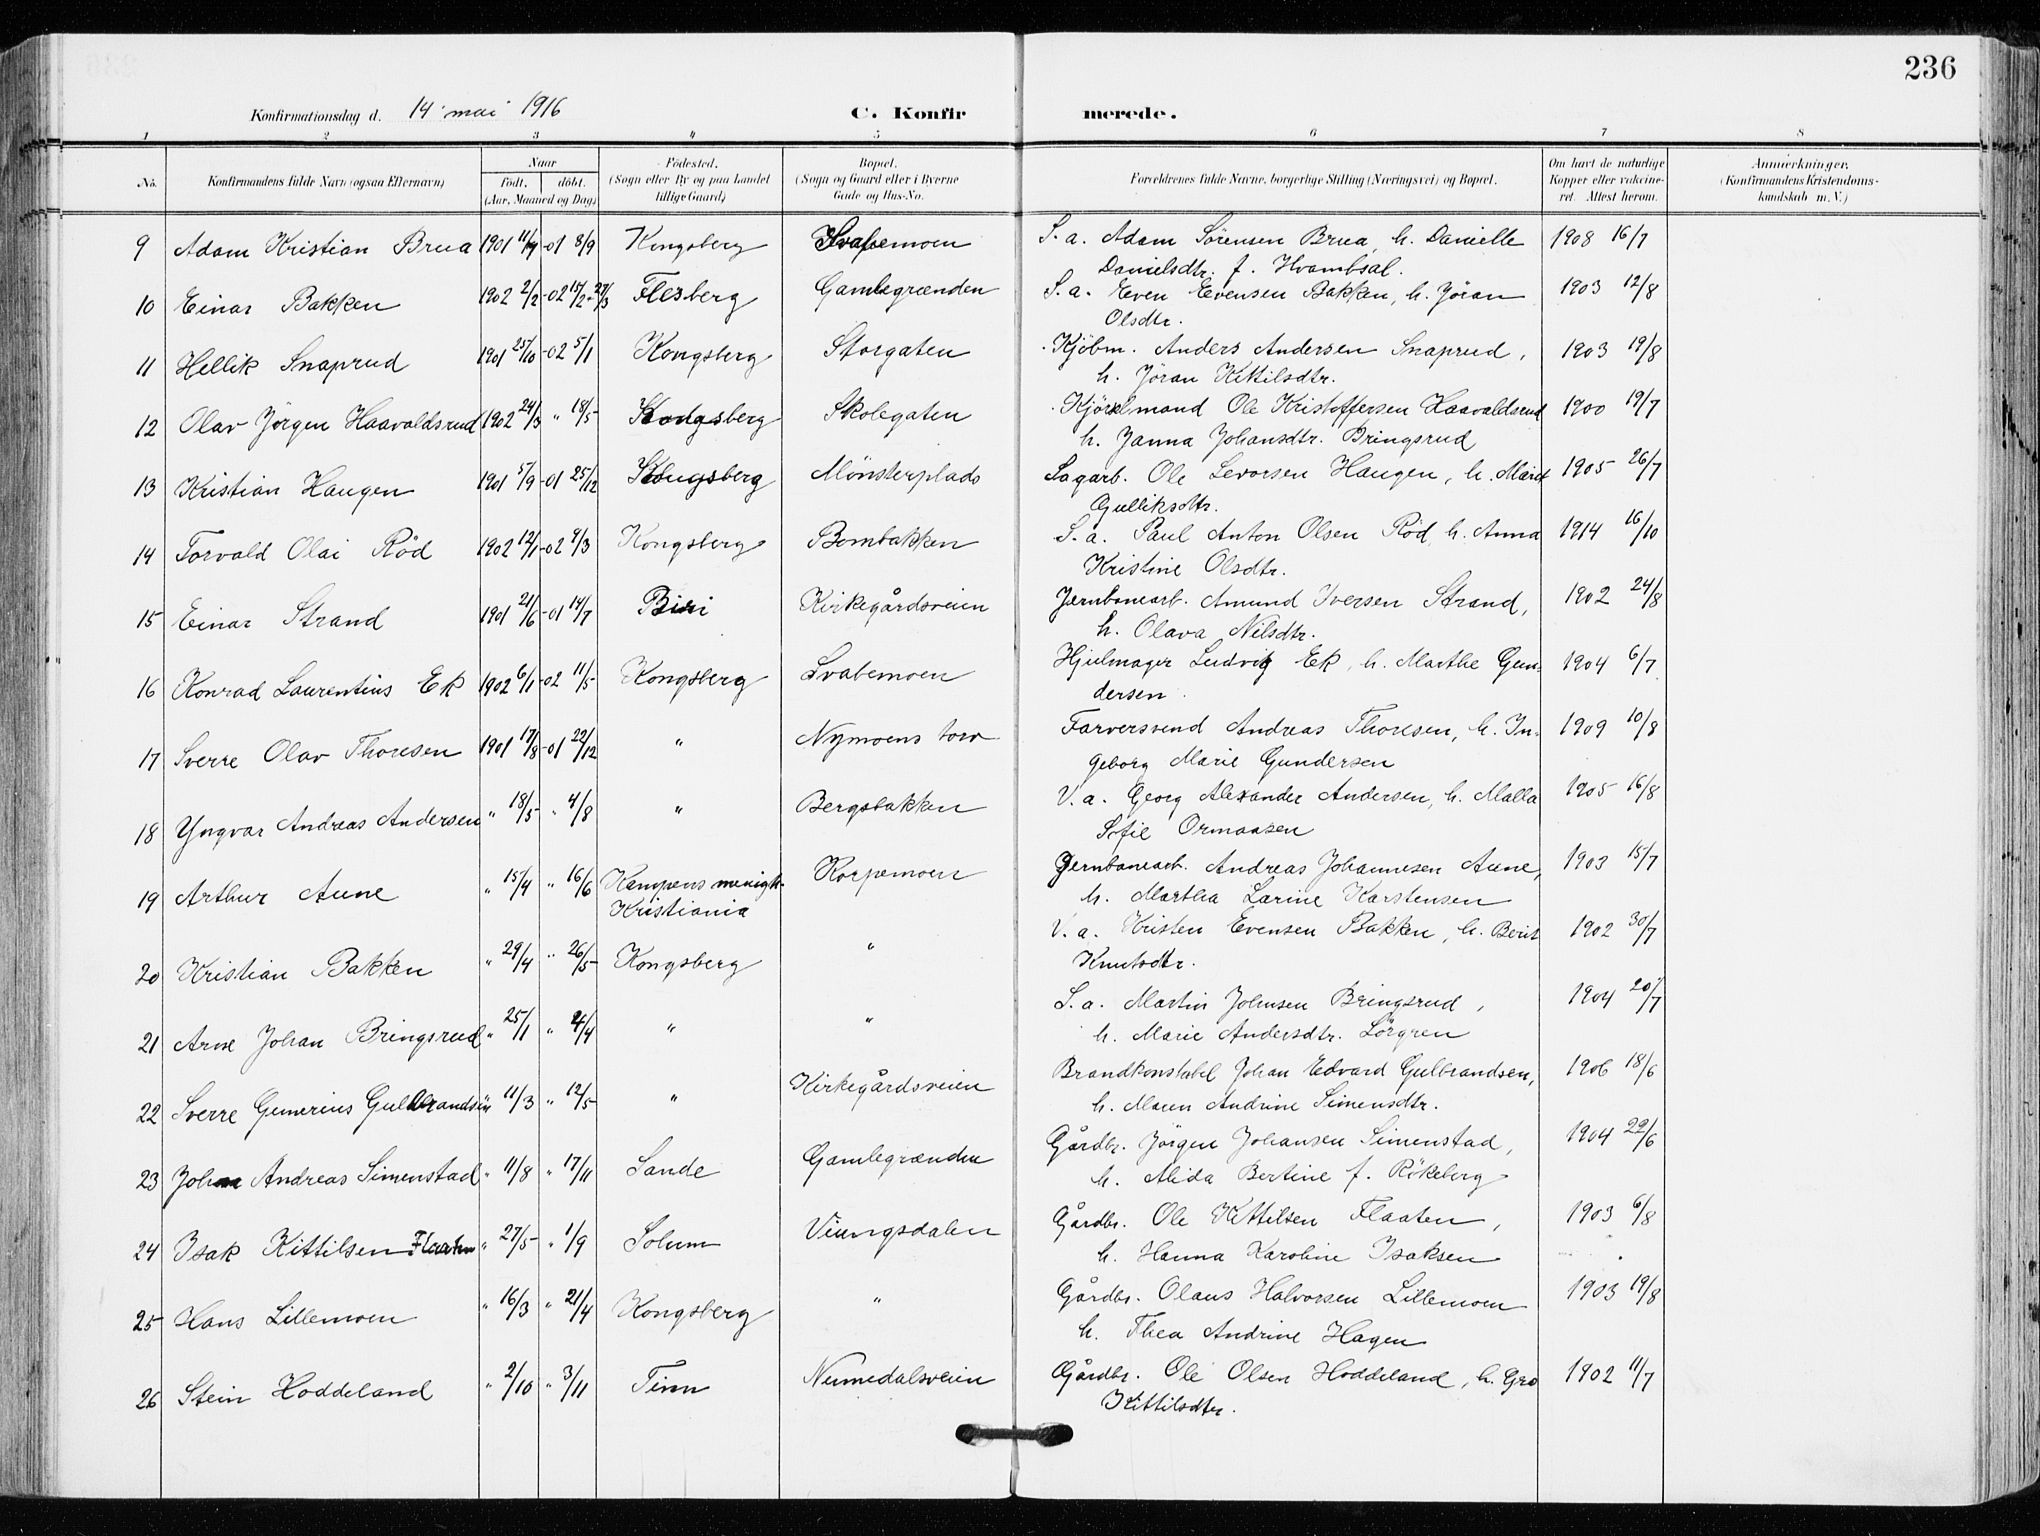 236
Konfirmationsdag d. 14 mai 1916 C. Konfirmerede.
1 2 3 4 5 6 7 8
No. Konfirmandens fulde Navn (ogsaa Efternavn) Naar födt. döbt. (Aar, Maaned og Dag) Födested. (Sogn eller By og paa Landet tillige Gaard) Bopæl. (Sogn og Gaard eller i Byerne Gade og Hus-No. Forældrenes fulde Navne, borgerlige Stilling (Næringsvei) og Bopæl. Om havt de naturlige Kopper eller vakcineret. Attest herom. Anmærkninger. (Konfirmandens Kristendomskundskab m. V.)
9 Adam Kristian Brua 1901 11/7 -01 8/9 Kongsberg Svabemoen S. a. Adam Sörensen Brua, h. Danielle 1908 16/7
Danielsdtr. f. Hvambsal.
10 Einar Bakken 1902 2/2 -02 15/2-27/3 Flesberg Gamlegrænden S. a. Even Evensen Bakken, h. Jöran 1903 12/8
Olsdtr.
11 Hellik Snaprud 1901 25/10 -02 5/1 Kongsberg Storgaten Kjöbm. Anders Andersen Snaprud, 1903 19/8
h. Jöran Kittilsdtr.
12 Olav Jörgen Haavaldsrud 1902 24/3 " 18/5 Kongsberg Skolegaten Kjörelmand Ole Kristoffersen Haavaldsrud 1900 19/7
h. Janna Johansdtr. Bringsrud
13 Kristian Haugen 1901 5/9 -01 25/12 Kongsberg Mønsterplads Sagarb. Ole Levorsen Haugen, h. Marit 1905 26/7
Gulliksdtr.
14 Torvald Olai Röd 1902 12/1 -02 9/3 Kongsberg Bombakken S. a. Paul Anton Olsen Röd, h. Anna 1914 16/10
Kristine Olsdtr.
15 Einar Strand 1901 21/6 -01 14/7 Biri Kirkegårdsveien Jernbanearb. Amund Iversen Strand, 1902 24/8
h. Olava Nilsdtr.
16 Konrad Laurentius Ek 1902 6/1 -02 11/5 Kongsberg Svabemoen Hjulmager Ludvig Ek, h. Marthe Gun- 1904 6/7
dersen.
17 Sverre Olav Thoresen 1901 17/8 -01 22/12 " Nymoens torv Farversvend Andreas Thoresen, h. In- 1909 10/8
geborg Marie Gundersen
18 Yngvar Andreas Andersen " 18/5 " 4/8 " Bergsbakken V. a. Georg Alexander Andersen, h. Malla 1905 16/8
Sofie Ormaasen
19 Arthur Aune " 15/4 " 16/6 Kampens menigh. Korpemoen Jernbanearb. Andreas Johannesen Aune, 1903 15/7
Kristiania h. Martha Larine Karstensen
20 Kristian Bakken " 29/4 " 26/5 Kongsberg " V. a. Kristen Evensen Bakken, h. Berit 1902 30/7
Knutsdtr.
21 Arne Johan Bringsrud " 25/1 " 4/4 " " S. a. Martin Johnsen Bringsrud, 1904 20/7
h. Marie Andersdtr. Lörgren
22 Sverre Gunerius Gulbrandsen " 11/3 " 12/5 " Kirkegårdsveien Brandkonstabel Johan Edvard Gulbrandsen, 1906 18/6
h. Maren Andrine Simensdtr.
23 Johan Andreas Simenstad " 11/8 " 17/11 Sande Gamlegrænden Gårdbr. Jörgen Johansen Simenstad, 1904 22/6
h. Alida Bertine f. Rökeberg
24 Isak Kittilsen Flaaten " 27/5 " 1/9 Solum Viungsdalen Gårdbr. Ole Kittilsen Flaaten, 1903 6/8
h. Hanna Karoline Isaksen
25 Hans Lillemoen " 16/3 " 21/4 Kongsberg " Gårdbr. Olaus Halvorsen Lillemoen 1903 19/8
h. Thea Andrine Hagen
26 Stein Hoddeland " 2/10 " 3/11 Tinn Numedalsveien Gårdbr. Ole Olsen Hoddeland, h. Gro 1902 11/7
Kittilsdtr.